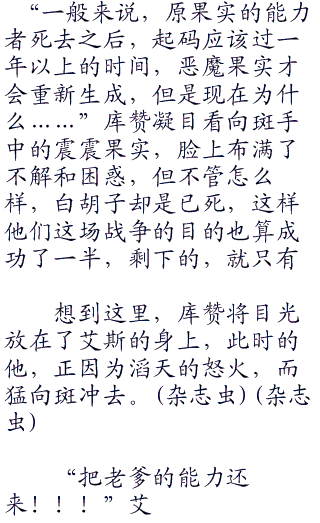 “一般来说，原果实的能力
者死去之后，起码应该过一
年以上的时间，恶魔果实才
会重新生成，但是现在为什
么……”库赞凝目看向斑手
中的震震果实，脸上布满了
不解和困惑，但不管怎么
样，白胡子却是已死，这样
他们这场战争的目的也算成
功了一半，剩下的，就只有
想到这里，库赞将目光
放在了艾斯的身上，此时的
他，正因为滔天的怒火，而
猛向斑冲去。(杂志虫)(杂志
虫)
“把老爹的能力还
来！！！”艾